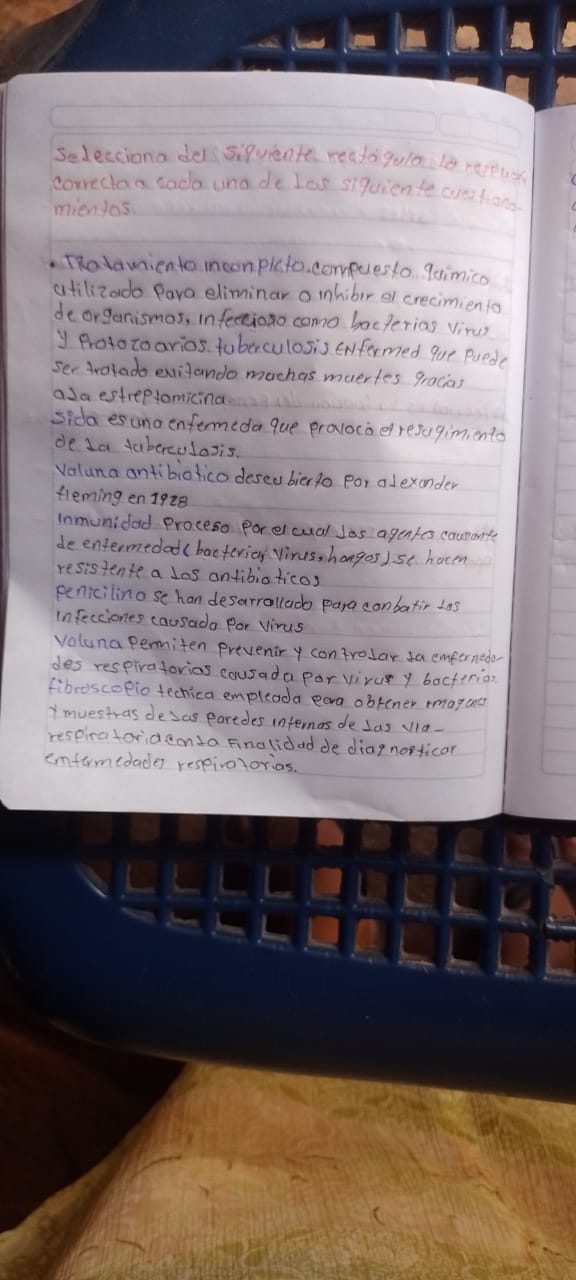 Selecciona del siguiente rectágulo la
correcta a cada una de las siguiente cuestiona-
mientos.
• Tratamiento inconplcto. compuesto químico
utilizado para eliminar o inhibir el crecimiento
de organismos, infeccioso como bacterias virus
y protozoarios. tuberculosis Enfermed que puede
ser tratado evitando muchas muertes gracias
a la estreptomicina
Sida es una enfermeda que provocó el resugimiento
de la tuberculosis.
Valuna antibiótico descubierto por alexander
fleming en 1928
inmunidad proceso por el cual los agentes causante
de enfermedad (bacterias, virus, hongos) se hacen
resistente a los antibioticos
penicilino se han desarrollado para conbatir las
infecciones causado por virus
Valuna permiten prevenir y controlar la enfermeda-
des respiratorias causada por virus y bacterias.
fibroscopio técnica empleada para obtener imagenes
y muestras de las paredes internas de las via-
respiratoria con la Finalidad de diagnosticar
enfermedades respiratorias.